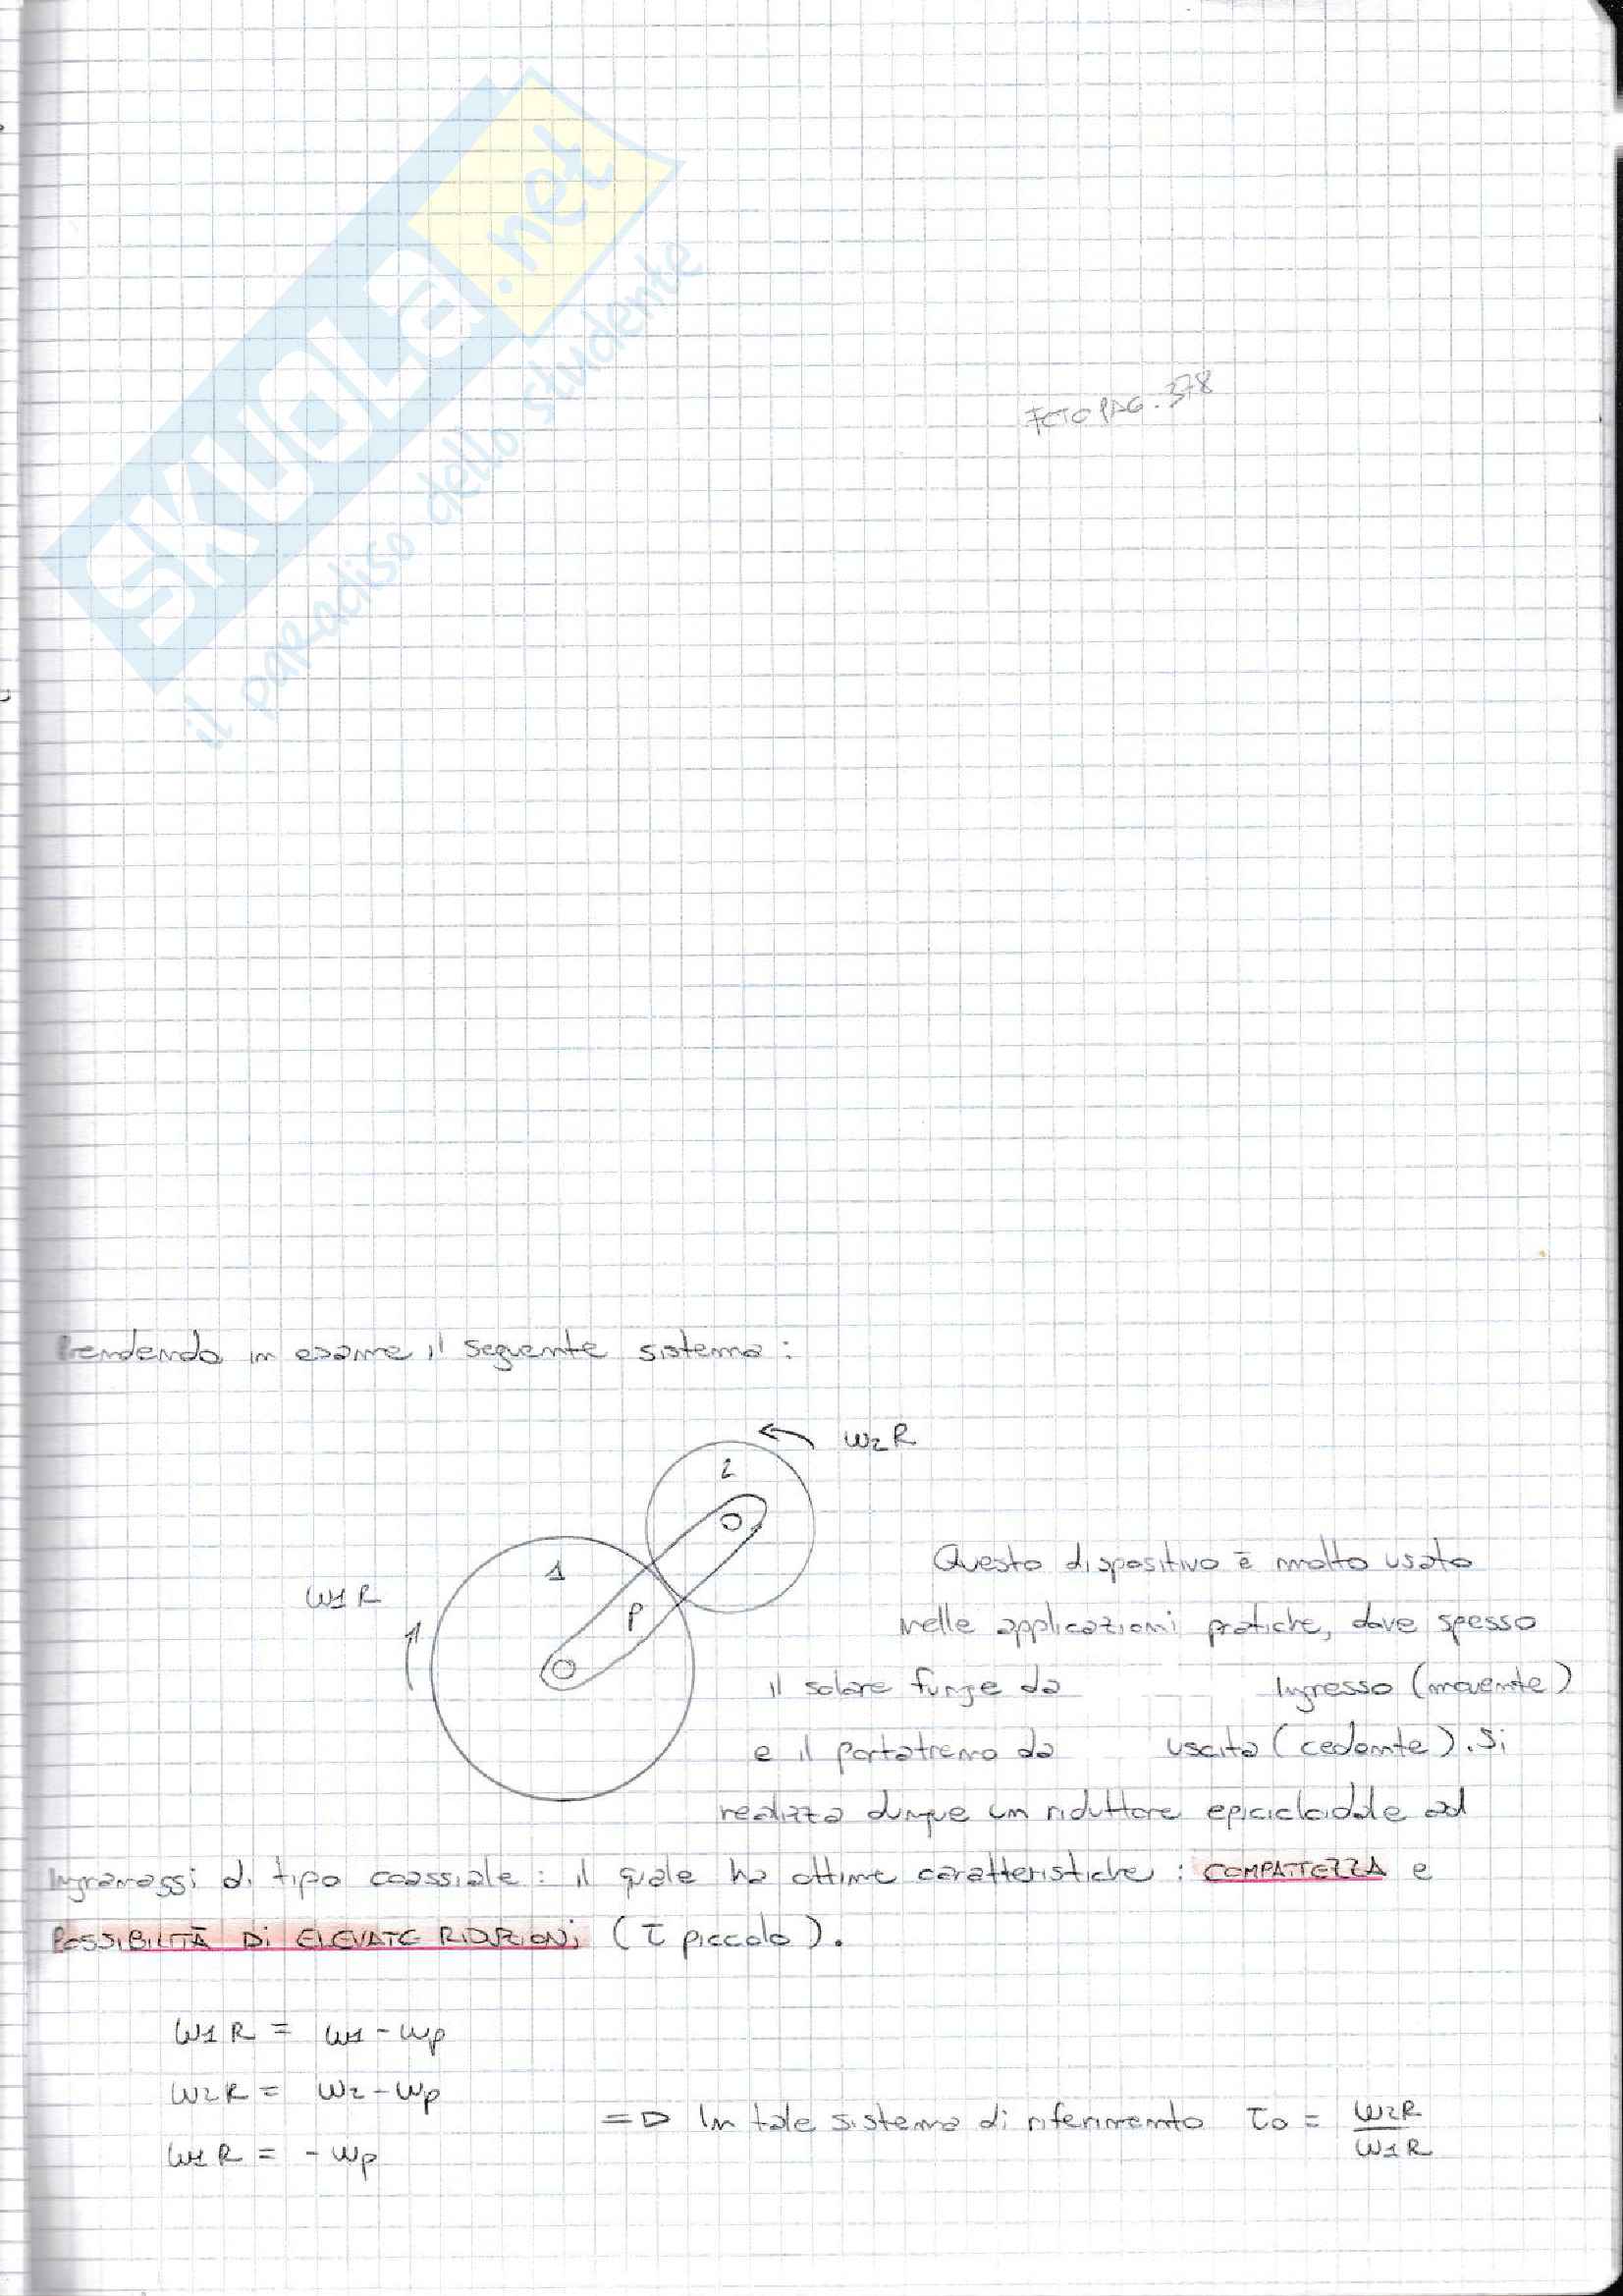 SKUOLA.net
il paradiso dello studente
FOTO PAG. 378
Prendendo in esame il seguente sistema:
ω2R
2
1
ω1R
P
Questo dispositivo è molto usato
nelle applicazioni pratiche, dove spesso
il solare funge da ingresso (movente)
e il portatreno da uscita (cedente). Si
realizza dunque un riduttore epicicloidale ad
ingranaggi di tipo coassiale: il quale ha ottime caratteristiche: COMPATTEZZA e
POSSIBILITÀ Di ELEVATE RIDUZIONI (τ piccolo).
ω1R = ω1 - ωp
ω2R = ω2 - ωp
=> In tale sistema di riferimento τ0 = ω2R / ω1R
ω1R = - ωp